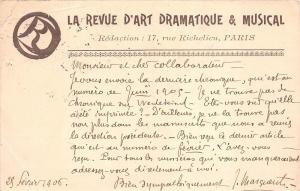 LA REVUE D'ART DRAMATIQUE & MUSICAL
Rédaction : 17, rue Richelieu, PARIS
Monsieur et cher collaborateur
Je vous envoie la dernière chronique, qui est au
numéro de Juin 1905 - Je ne trouve pas de
chronique sur Wedekind. Etes-vous sûr qu'elle
a été imprimée ? D'ailleurs, je ne la trouve pas
non plus dans les manuscrits que nous a remis
la direction précédente. - Bien reçu le dernier article
qui est au numéro de février. L'avez-vous
reçu. Pour tous les numéros qui vous manqueraient
adressez-vous directement à moi.
Bien sympathiquement
25 février 1906.